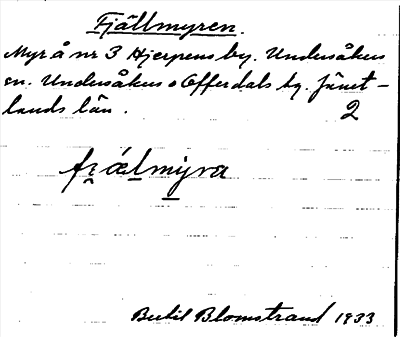 Fjällmyren.
Myr å nr 3 Hjerpens by. Undersåkers
sn. Undersåkers o Offerdals tg. Jämt-
lands län. 2
fi̯ælmyra
Bertil Blomstrand 1933